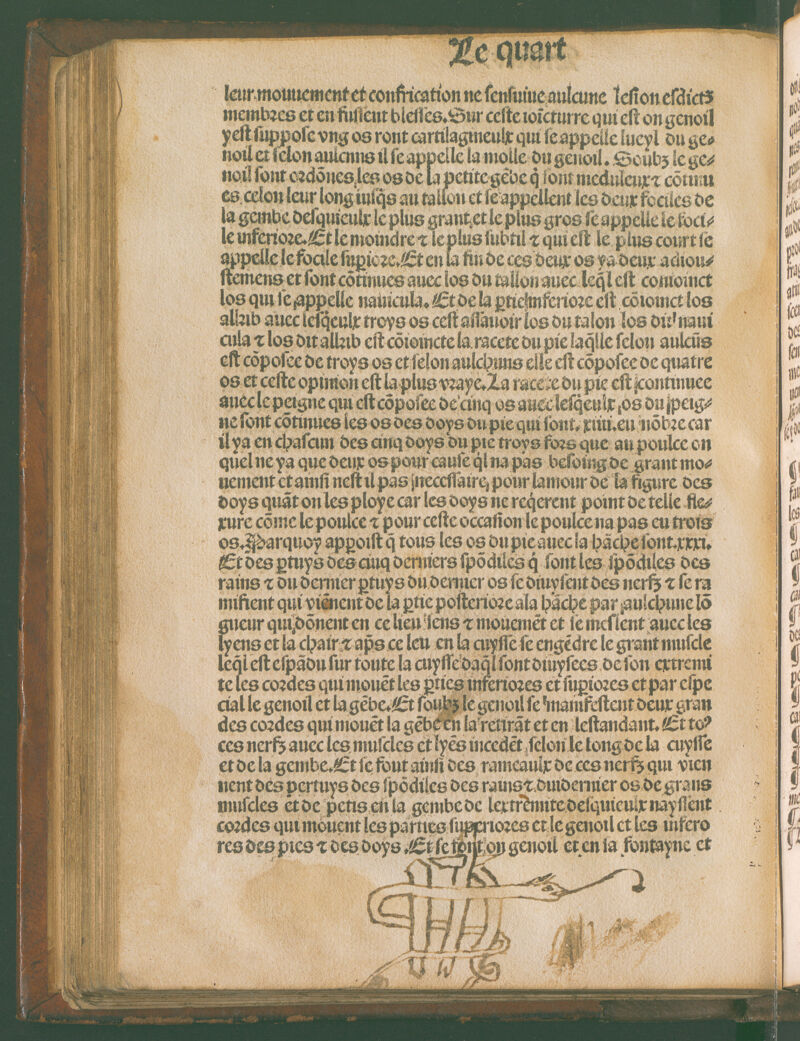 Le quart
leur.mouuement et confrication ne ſenſuiue aulcune leſion eſdictʒ
membꝛes et en fuſſent bleſſes.Sur ceſte ioicturre qui eſt on genoil
yeſt ſuppoſe vng os ront cartilagineulx qui ſe appelle lueyl ou ge⸗
noil et ſelon aulcuns il ſe appelle la molle du genoil. Soubʒ le ge⸗
noil ſont oꝛdōnes les os de la petite gēbe q̄ ſont meduleux ⁊ cōtinu
es celon leur long iuſq̄s au tallon et ſe appellent les deux fociles de
la gembe deſquieulx le plus grant et le plus gros ſe appelle le foci⸗
le inferioꝛe.Et le moindre ⁊ le plus ſubtil ⁊ qui eſt le plus court ſe
appelle le focile ſuꝑioꝛe.Et en la fin de ces deux os ya deux adiou⸗
ſtemens et ſont cōtinues auec los du tallon auec leq̄l eſt conioinct
los qui ſe appelle nauicula.Et de la ꝑtie inferioꝛe eſt cōioinct los
alkib auec leſq̄eulx troys os ceſt aſſauoir los du talon los dit naui
cula ⁊ los dit alkib eſt cōioincte la racete du pie laq̄lle ſelon aulcūs
eſt cōpoſee de troys os et ſelon aulchuns elle eſt cōpoſee de quatre
os et ceſte opinion eſt la plus vꝛaye.La racete du pie eſt continuee
auec le peigne qui eſt cōpoſee de cinq os auec leſq̄eulx os du peig⸗
ne ſont cōtinues les os des doys du pie qui ſont. xiiii.en nōbꝛe car
il ya en chaſcun des cinq doys du pie troys foꝛs que au poulce on
quel ne ya que deux os pour cauſe q̄l na pas beſoing de grant mo⸗
uement et ainſi neſt il pas neceſſaire pour lamour de la figure des
doys quāt on les ploye car les doys ne req̄erent point de telle fle⸗
xure cōme le poulce ⁊ pour ceſte occaſion le poulce na pas eu trois
os.Parquoy appoiſt q̄ tous les os du pie auec la hāche ſont.xxxi.
Et des ꝑtuys des cinq derniers ſpōdiles q̄ ſont les ſpōdiles des
rains ⁊ du dernier ꝑtuys du dernier os ſe diuyſent des nerfʒ ⁊ ſe ra
mifient qui viēnent de la ꝑtie poſterioꝛe ala hāche par aulchune lō
gueur qui dōnent en ce lieu ſens ⁊ mouemēt et ſe meſlent auec les
lyens et la chair ⁊ ap̄s ce leu en la cuyſſe ſe engēdre le grant muſcle
leq̄l eſt eſpādu ſur toute la cuyſſe daq̄l ſont diuyſees de ſon extremi
te les coꝛdes qui mouēt les ꝑties inferioꝛes et ſuꝑioꝛes et par eſpe
cial le genoil et la gēbe.Et ſoubʒ le genoil ſe manifeſtent deux gran
des coꝛdes qui mouēt la gēbe en la retirāt et en leſtandant.Et toꝰ
ces nerfʒ auec les muſcles et lyēs incedēt ſelon le long de la cuyſſe
et de la gembe.Et ſe font ainſi des rameaulx de ces nerfʒ qui vien
nent des pertuys des ſpōdiles des rains ⁊ du dernier os de grans
muſcles et de petis en la gembe de lextremite deſquieulx nayſſent
coꝛdes qui mouent les parties ſupperioꝛes et le genoil et les infero
res des pies ⁊ des doys .Et ſe font on genoil et en la fontayne et